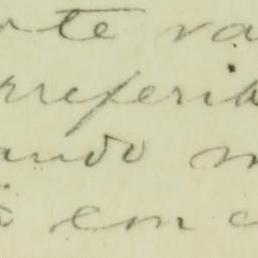 rte va
rreferib
ando m
ã em c